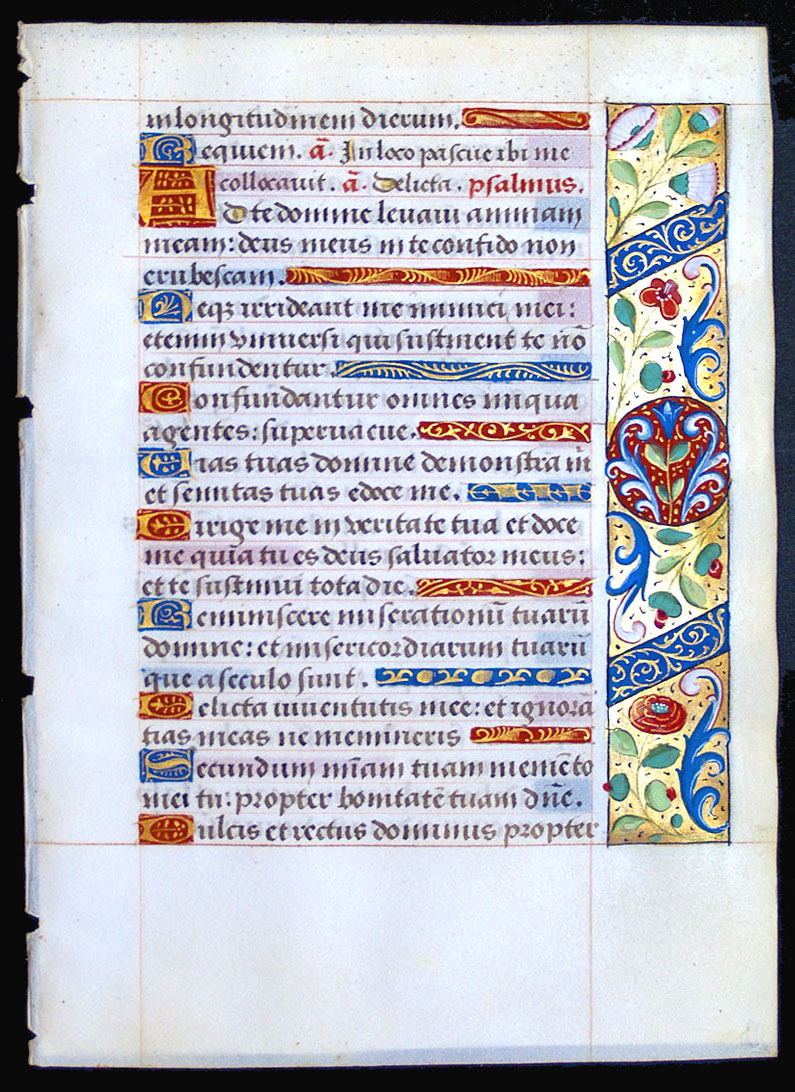 in longitudinem dierum.
Requiem. ā. In loco pascue ibi me
collocauit. ā. Delicta. psalmus.
Ad te domine leuaui animam
meam: deus meus in te confido non
erubescam.
Neqȝ irrideant me inimici mei:
etenim vniuersi qui sustinent te nō
confundentur.
Confundantur omnes iniqua
agentes: superuacue.
Uias tuas domine demonstra m̄
et semitas tuas edoce me.
Dirige me in veritate tua et doce
me quia tu es deus saluator meus:
et te sustinui tota die.
Reminiscere miserationū tuarū
domine: et misericordiarum tuarū
que a seculo sunt.
Delicta iuuentutis mee: et ignorā
tias meas ne memineris
Secundum mīam tuam memēto
mei tu: propter bonitatē tuam dn̄e.
Dulcis et rectus dominus propter